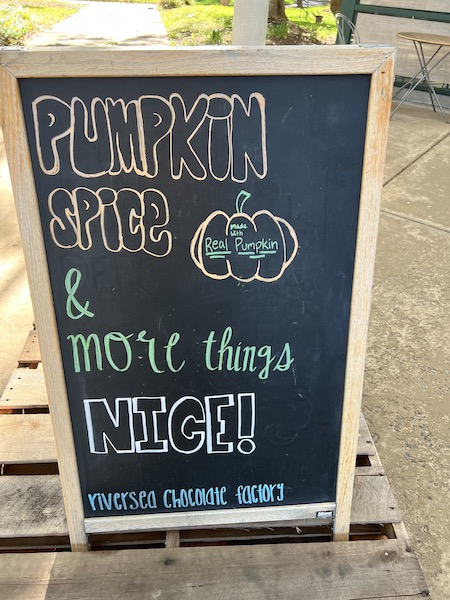 PUMPKIN
SPICE
made
with
Real Pumpkin
&
more things
NICE!
riversea chocolate factory